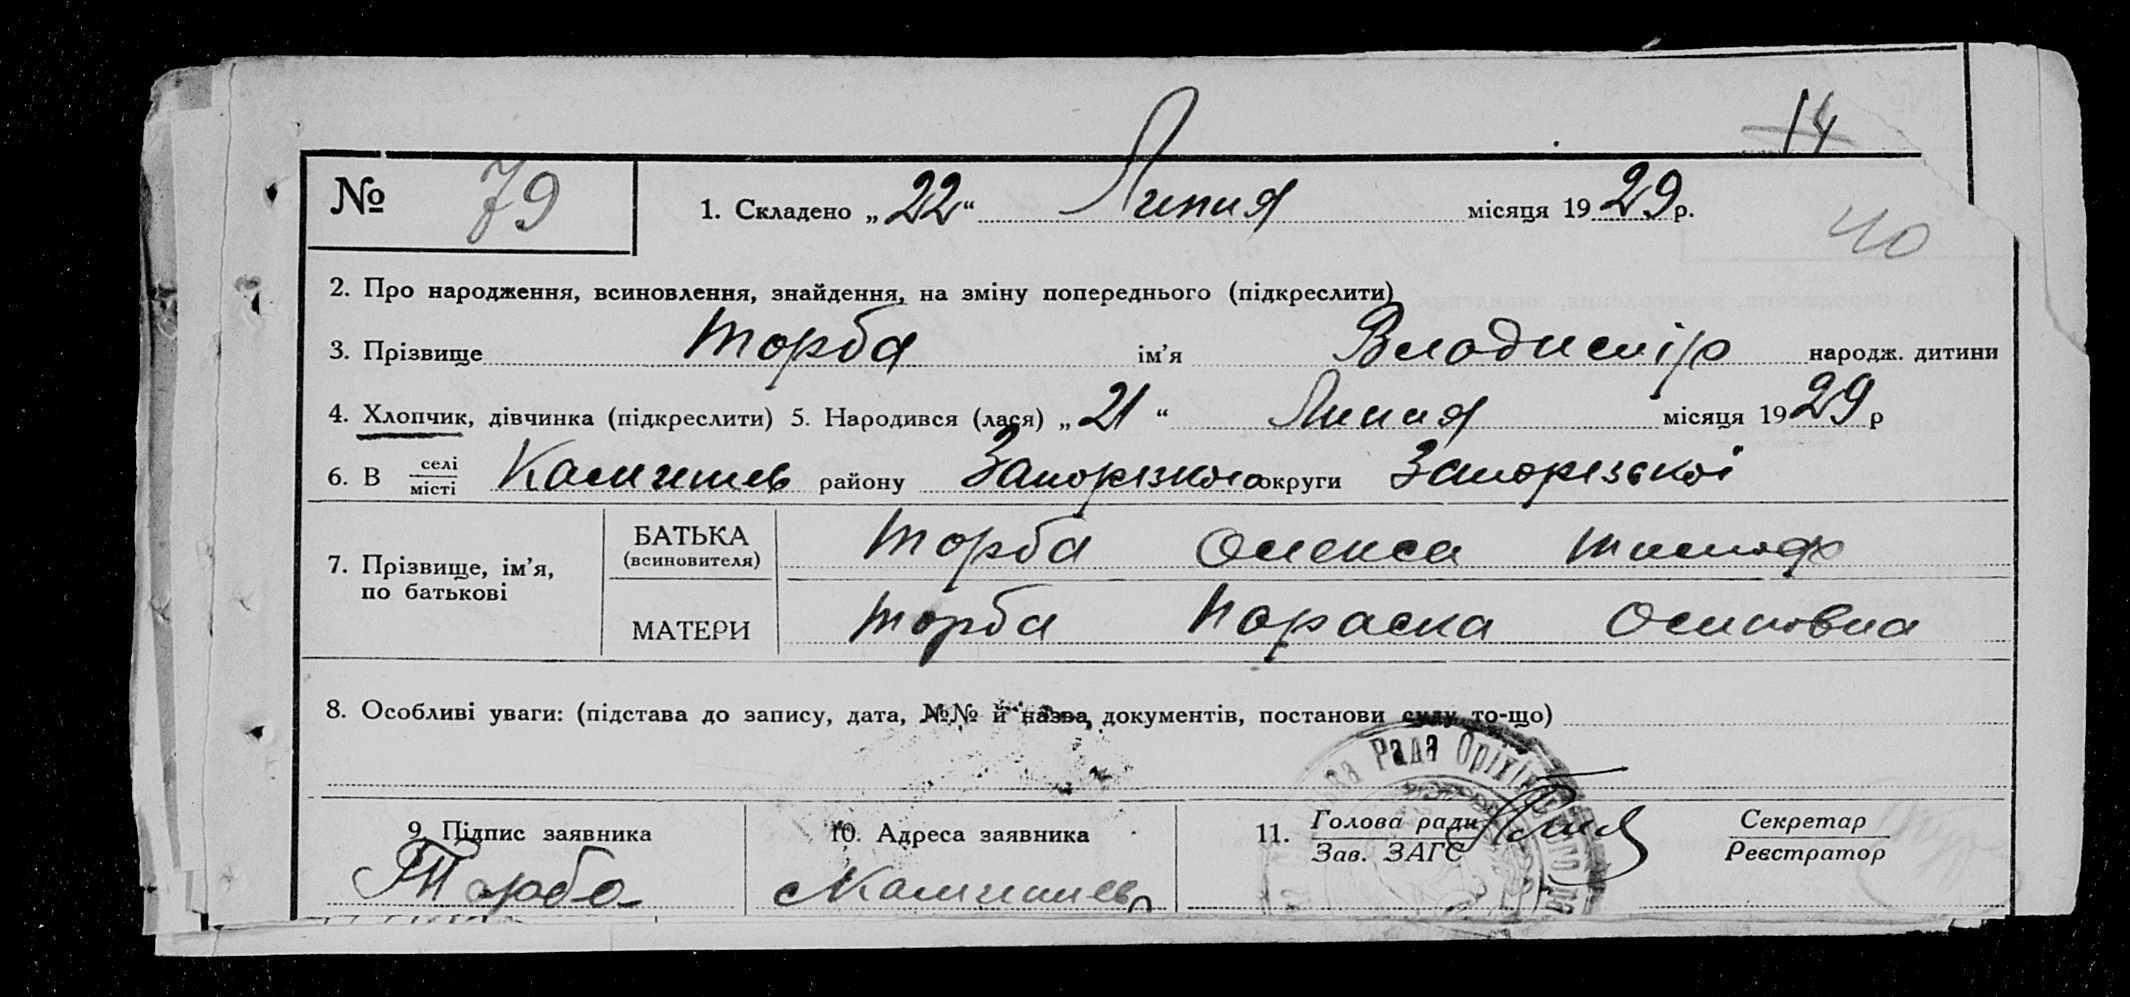 14
№ 79
1. Складено „22“ Липня місяця 1929 р.
40
2. Про народження, всиновлення, знайдення, на зміну попереднього (підкреслити)
3. Прізвище Торба ім’я Владимір народж. дитини
4. Хлопчик, дівчинка (підкреслити) 5. Народився (лася) „21“ Липня місяця 1929 р
6. В селі
місті Камишев району Запорізького округи Запорізької
7. Прізвище, ім’я,
по батькові
БАТЬКА
(всиновителя)
Торба Олекса Тимоф
МАТЕРИ Торба Параска Осиповна
8. Особливі уваги: (підстава до запису, дата, №№ й назва документів, постанови суду то-що)
Рада Оріхівського
9. Підпис заявника
Торба
10. Адреса заявника
Камишев
11. Голова ради
Зав. ЗАГС
Секретар
Реєстратор